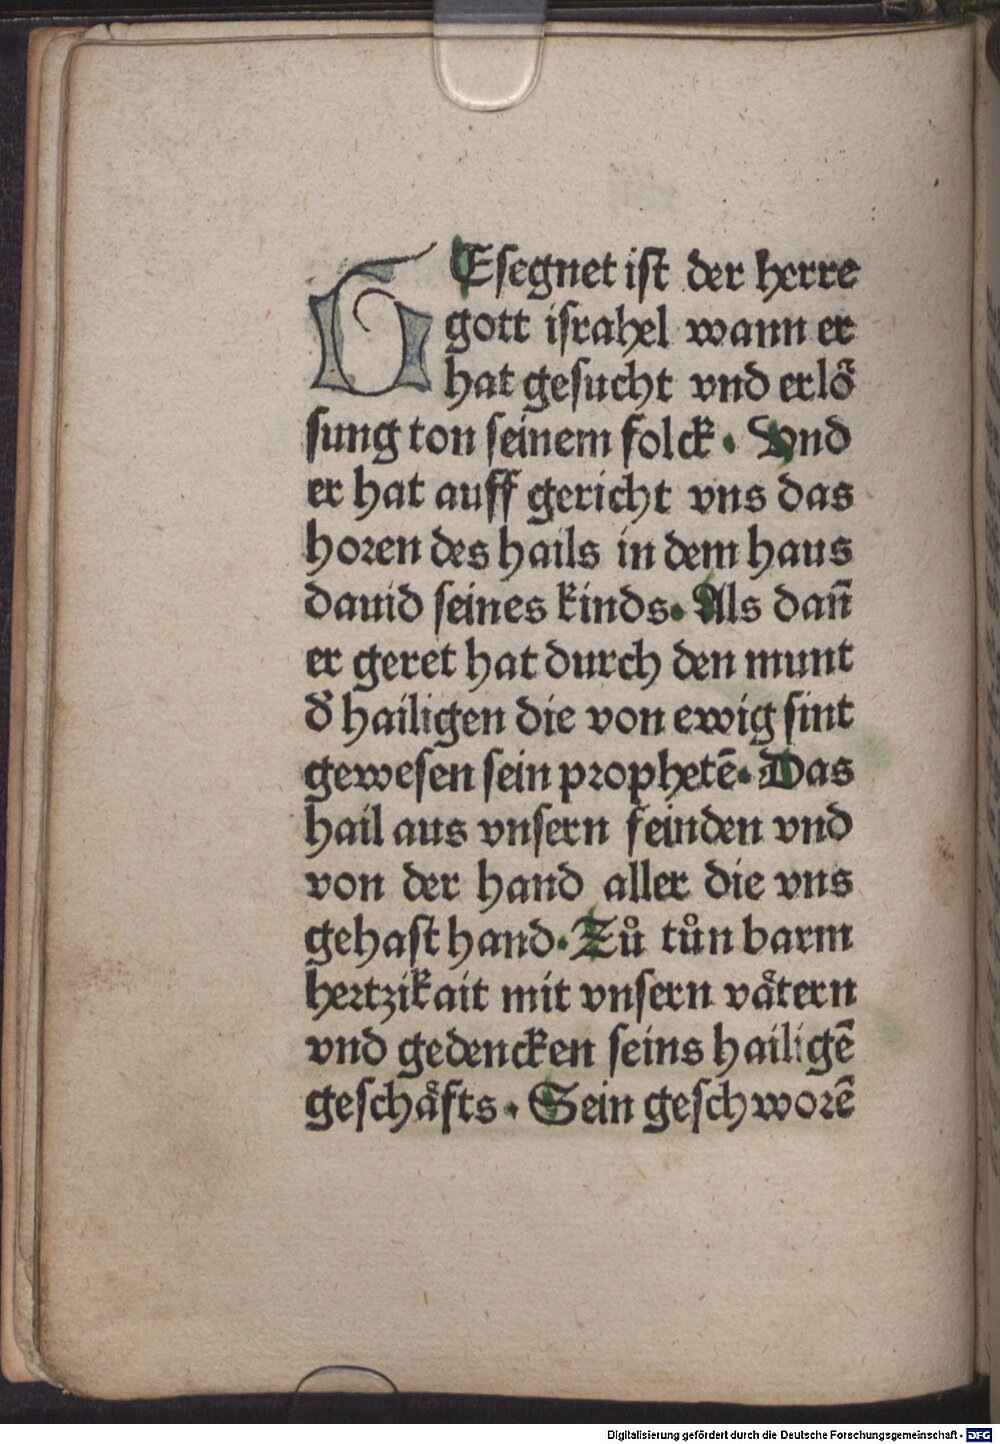 GEsegnet ist der herre
gott israhel wann er
hat gesucht vnd erlö᷎
sung ton seinem folck. Vnd
er hat auff gericht vns das
horen des hails in dem haus
dauid seines kinds. Als dan̄
er geret hat durch den munt
d̕ hailigen die von ewig sint
gewesen sein prophetē. Das
hail aus vnsern feinden vnd
von der hand aller die vns
gehast hand. Zů tůn barm
hertzikait mit vnsern våtern
vnd gedencken seins hailigē
geschåfts. Sein geschworē
Digitalisierung gefördert durch die Deutsche Forschungsgemeinschaft - DFG